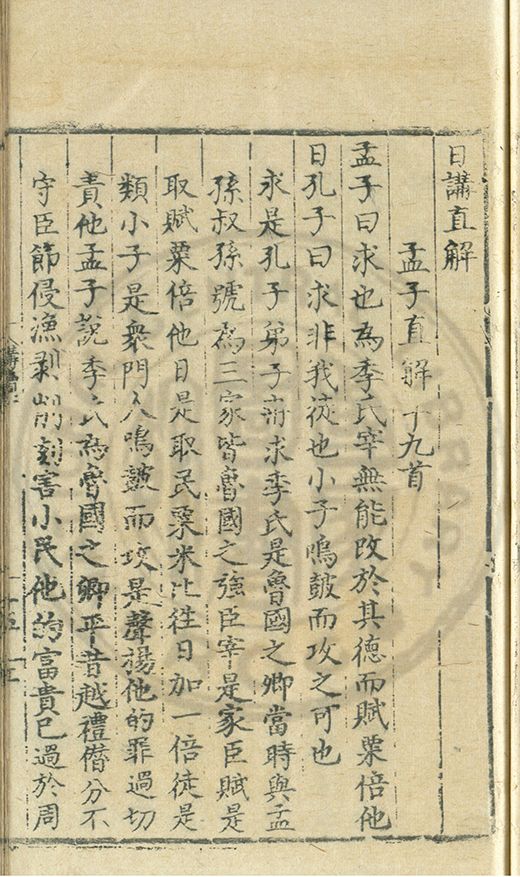 日講直解
孟子直解十九首
孟子曰求也為季氏宰無能改於其德而賦粟倍他
日孔子曰求非我徒也小子鳴鼓而攻之可也
求是孔子弟子冉求季氏是魯國之卿當時與孟
孫叔孫號為三家皆魯國之強臣宰是家臣賦是
取賦粟倍他日是取民粟米比往日加一倍徒是
類小子是衆門人鳴鼓而攻是聲揚他的罪過切
責他孟子說季氏為魯國之卿平昔越禮僭分不
守臣節侵漁剥削刻害小民他的富貴已過於周